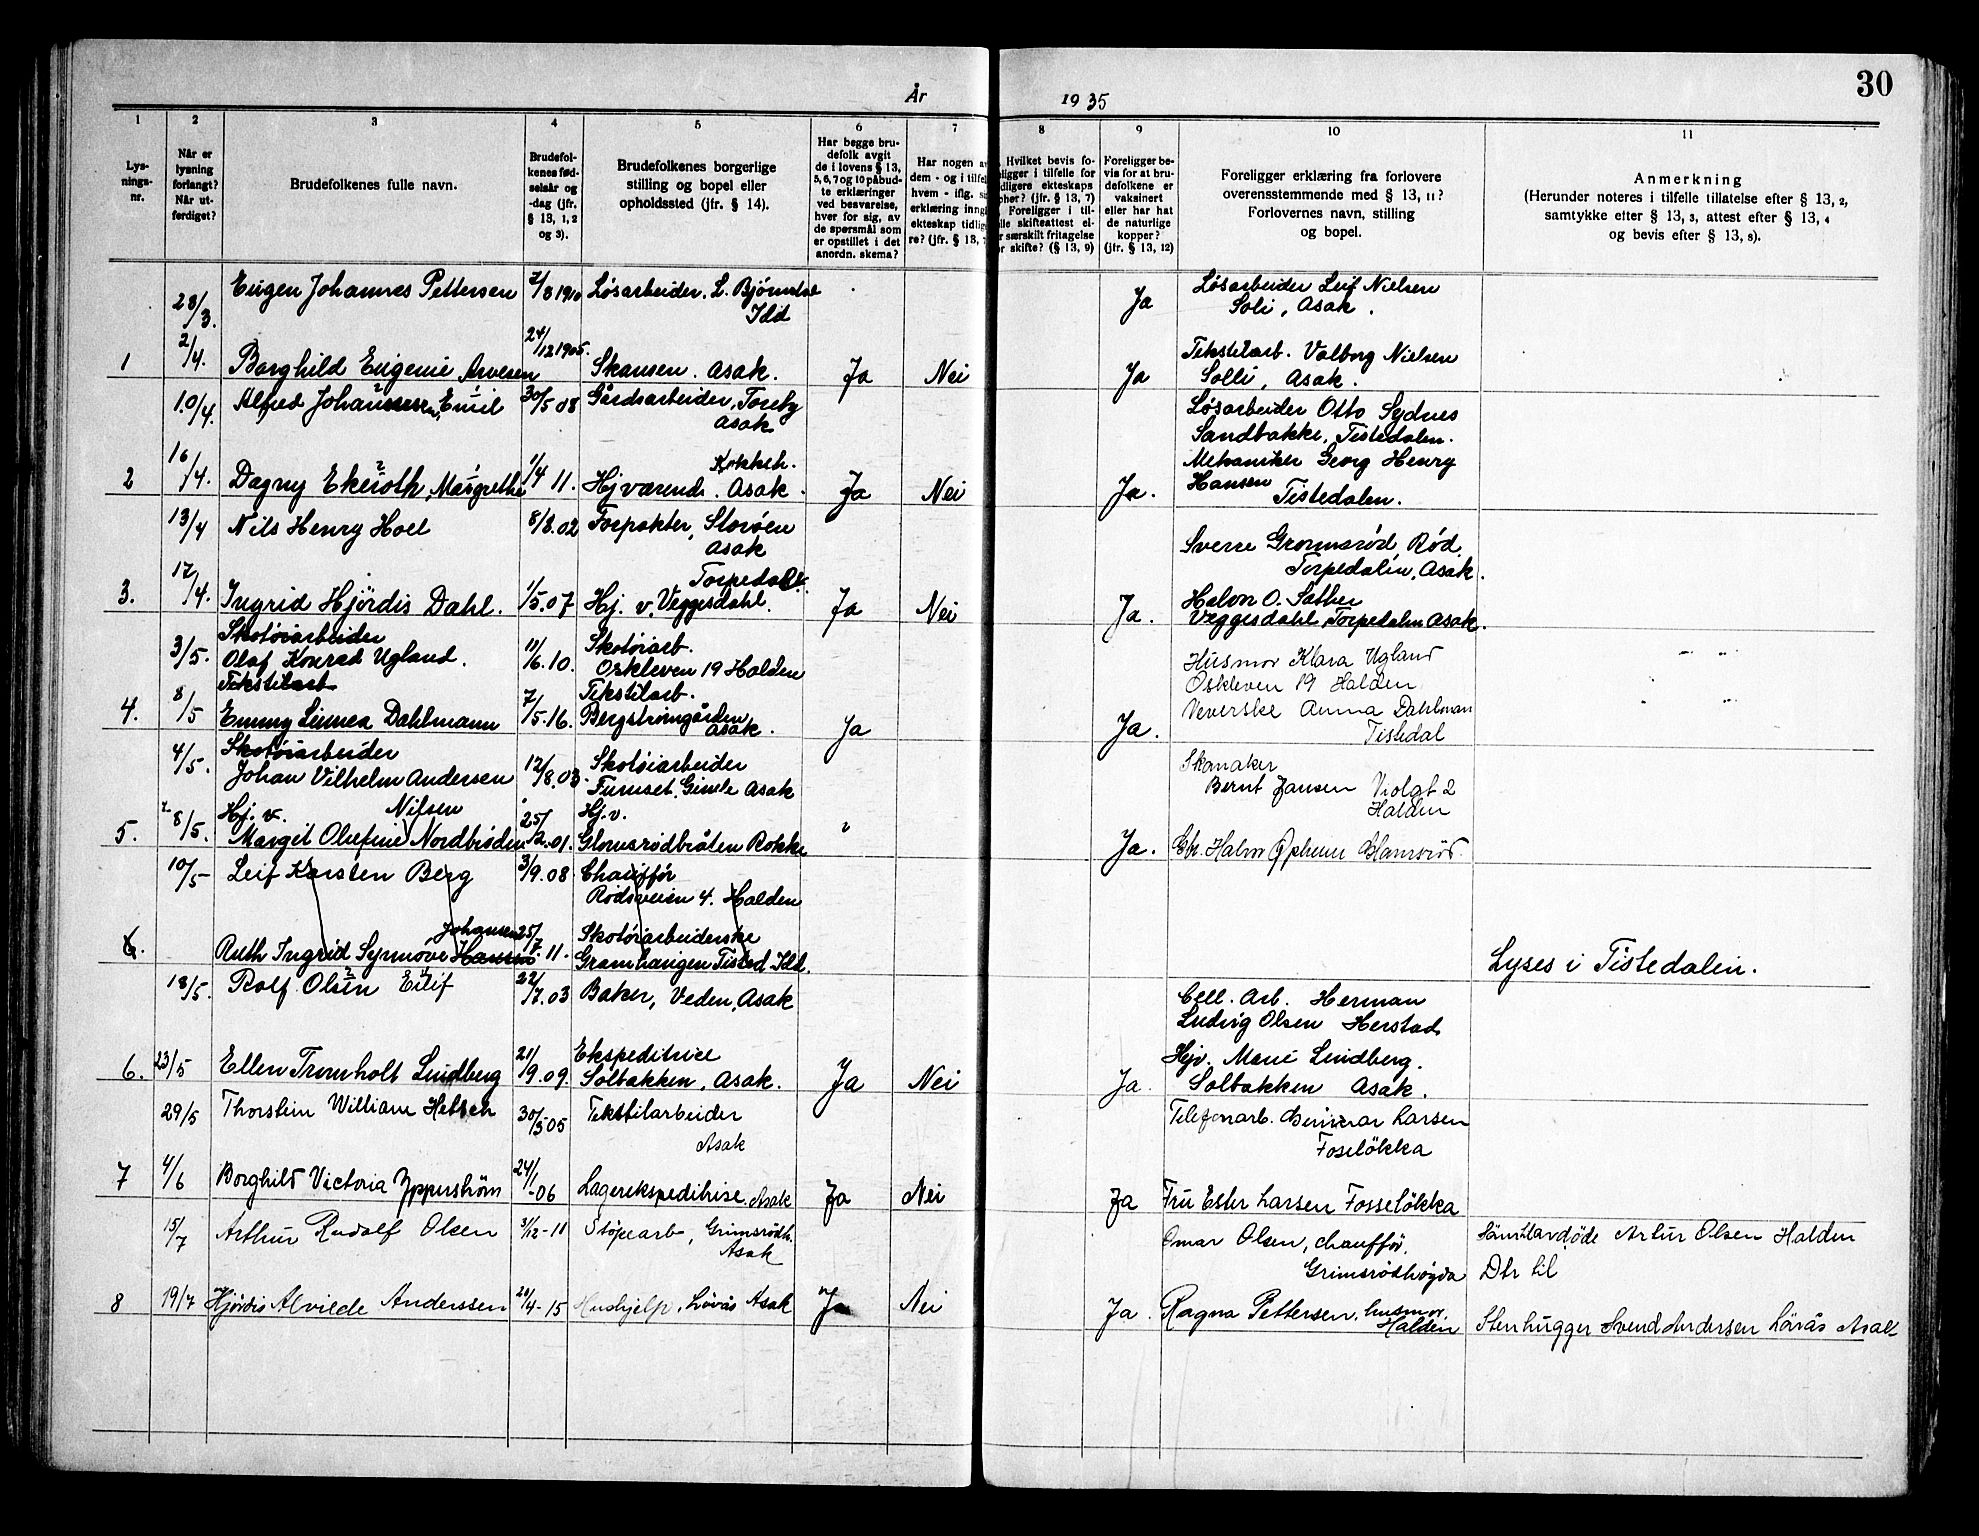 30
År 1935
1
2
3
4
5
6
7
8
9
10
11
Lys-
nings-
nr.
Når er
lysning
forlangt?
Når ut-
ferdiget?
Brudefolkenes fulle navn.
Brudefol-
kenes fød-
selsår og
-dag (jfr.
§ 13, 1, 2
og 3).
Brudefolkenes borgerlige
stilling og bopel eller
opholdssted (jfr. § 14).
Har begge bru-
defolk avgit
de i lovens § 13,
5, 6, 7 og 10 påbud-
te erklæringer
ved besvarelse,
hver for sig, av
de spørsmål som
er opstillet i det
anordn. skema?
Har nogen av
dem - og i tilfel
hvem - iflg. si
erklæring inng
ekteskap tidlig
re? (jfr. § 13, 7
Hvilket bevis fo-
ligger i tilfelle for
dligere ekteskaps
phør? (jfr. § 13, 7)
Foreligger i til-
lle skifteattest el-
r særskilt fritagelse
or skifte? (§ 13, 9)
Foreligger be-
vis for at bru-
defolkene er
vaksinert
eller har hat
de naturlige
kopper?
(jfr. § 13, 12)
Foreligger erklæring fra forlovere
overensstemmende med § 13, 11?
Forlovernes navn, stilling
og bopel.
Anmerkning
(Herunder noteres i tilfelle tillatelse efter § 13, 2,
samtykke efter § 13, 3, attest efter § 13, 4
og bevis efter § 13, 8).
28/3. Eugen Johannes Pettersen 7/8 1910 Løsarbeider. L. Bjørnstad Ja Løsarbeider Leif Nielsen
Idd Soli, Asak.
2/4. 24/12 1905. Tekstilarb. Valborg Nielsen
1 Borghild Eugenie Arvesen Skansen. Asak. Ja Nei Ja Solli, Asak.
10/4. Alfred Johannessen, Emil 30/5 08 Gårdsarbeider, Toreby Løsarbeider Otto Sydnes
Asak Sandbakke, Tistedalen.
16/4. Kokkeh. Mekaniker Georg Henry
2 Dagny Ekeroth, Margrethe 1/4 11. Hjværende. Asak. Ja Nei Ja. Hansen Tistedalen.
13/4 Nils Henry Hoel 8/8.02 Forpakter, Storøen
Asak Sverre Gromsrød, Rød.
Torpedalen, Asak.
17/4. Torpedalen.
3. Ingrid Hjördis Dahl. 1/5.07 Hj. v. Veggesdahl. Ja Nei Ja. Halvor O. Sæther
Veggesdahl Torpedalen Asak.
Skotøiarbeider
3/5. Olaf Konrad Ugland. 11/6.10. Skotøiarb. Husmor Klara Ugland
Oskleven 19 Halden Oskleven 19 Halden
Tekstilarb Tekstilarb.
4. 8/5 Emmy Linnea Dahlmann 7/5.16. Bergstrømgården Ja Ja. Veverske Anna Dahlman
Asak. Tistedal
Skotøiarbeider
4/5. Johan Vilhelm Andersen 12/8.03. Skotøiarbeider Skomaker
Furuset. Gimle Asak Bernt Jansen Violgt 2
Halden
Hj. v. Nilsen Hj. v.
5. 8/5. Margit Olufine Nordbrøden 25/2.01. Glomsrødbråten Rokke Ja.
10/5 Leif Karsten Berg 3/9.08 Chauffør
Rødsveien 4. Halden
Johansen
6. Ruth Ingrid Synnøve Hansen 25/7.11. Skotøiarbeiderske
Gramhaugen Tisted. Idd. Lyses i Tistedalen.
18/5. Rolf Olsen Eilif 22/7.03 Baker, Veden, Asak Cell. Arb. Herman
Ludvig Olsen Herstad
6. 23/5 Ellen Tromholt Lindberg 21/9.09. Ekspeditrice Hjv. Marie Lindberg.
Solbakken, Asak. Ja Nei Ja. Solbakken Asak.
29/5 Thorstein William Helsch 30/5-05 Tekstilarbeider Telefonarb. Larsen
Asak Foseløkka
7 4/6 Borghild Victoria 24/1-06 Lagerekspeditrise. Asak Ja Nei Ja Fru Ester Larsen Fosseløkka
15/7 Arthur Rudolf Olsen 31/12-11 Støpearb, Grimsrødh. Omar Olsen, chauffør, Artur Olsen Halden
Asak Grimsrødhøgda Dtr til
8 19/7 Hjørdis Alvilde Anderssen 20/4-15 Hushjelp, Løvås Asak Ja Nei Ja. Ragna Pettersen, husmor
Halden Stenhugger Svend Andersen Løvås Asak